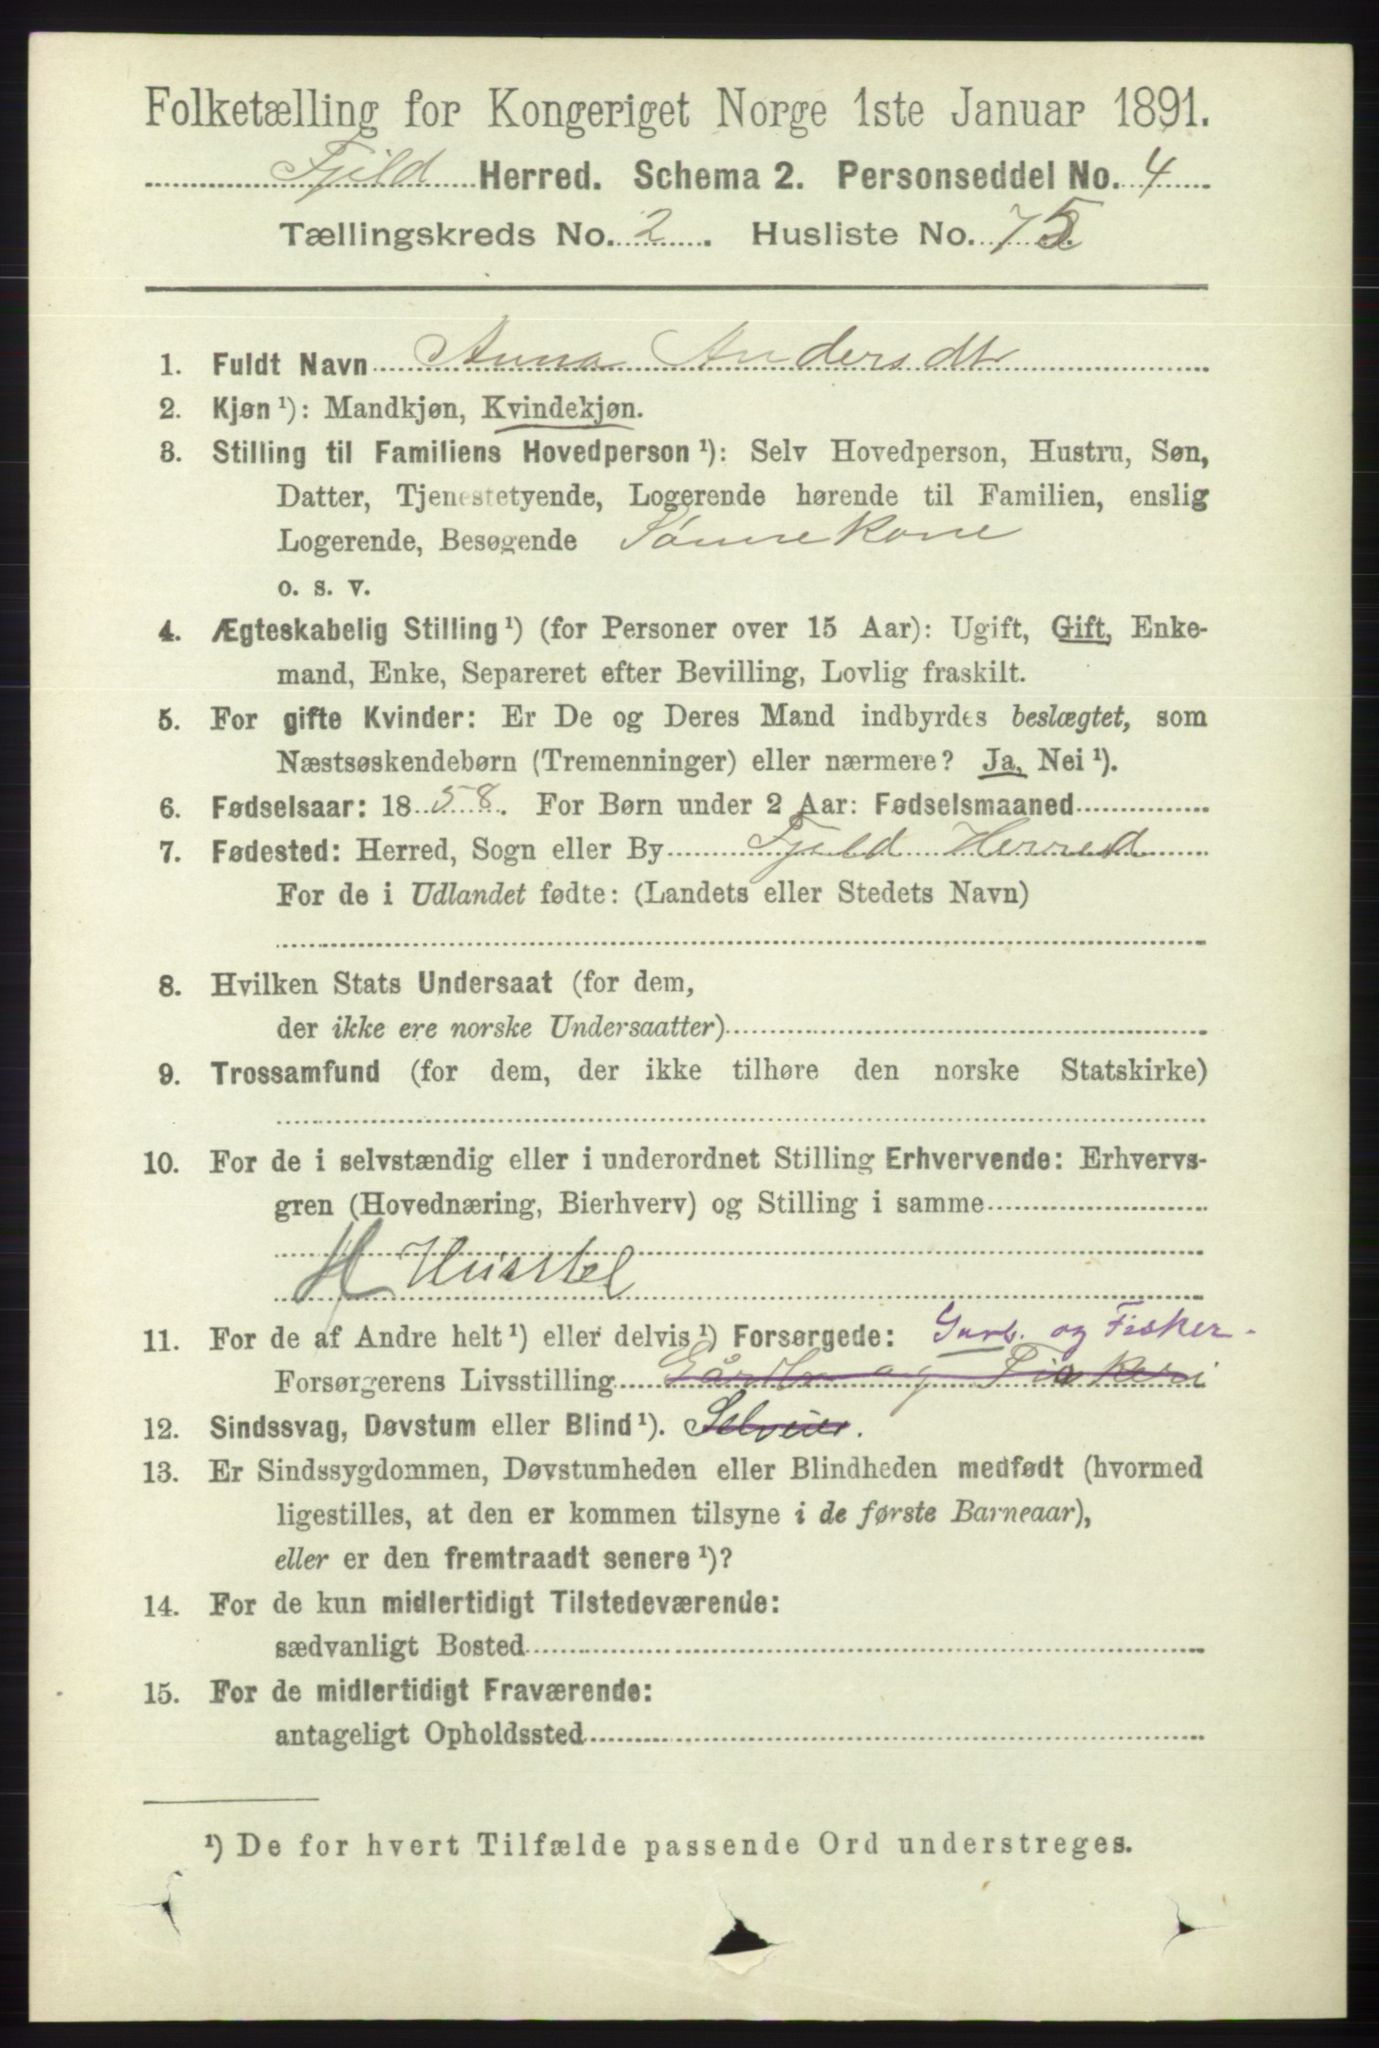 Folketælling for Kongeriget Norge 1ste Januar 1891.
Fjeld Herred. Schema 2. Personseddel No. 4
Tællingskreds No. 2. Husliste No. 75
1. Fuldt Navn Anna Andersdt
2. Kjøn ¹): Mandkjøn, Kvindekjøn.
3. Stilling til Familiens Hovedperson ¹): Selv Hovedperson, Hustru, Søn,
Datter, Tjenestetyende, Logerende hørende til Familien, enslig
Logerende, Besøgende Sønnekone
o. s. v.
4. Ægteskabelig Stilling ¹) (for Personer over 15 Aar): Ugift, Gift, Enke-
mand, Enke, Separeret efter Bevilling, Lovlig fraskilt.
5. For gifte Kvinder: Er De og Deres Mand indbyrdes beslægtet, som
Næstsøskendebørn (Tremenninger) eller nærmere? Ja, Nei ¹).
6. Fødselsaar: 1858. For Børn under 2 Aar: Fødselsmaaned
7. Fødested: Herred, Sogn eller By Fjeld Herred
For de i Udlandet fødte: (Landets eller Stedets Navn)
8. Hvilken Stats Undersaat (for dem,
der ikke ere norske Undersaatter)
9. Trossamfund (for dem, der ikke tilhøre den norske Statskirke)
10. For de i selvstændig eller i underordnet Stilling Erhvervende: Erhvervs-
gren (Hovednæring, Bierhverv) og Stilling i samme
H Husstel
11. For de af Andre helt ¹) eller delvis ¹) Forsørgede: Garb. og Fisker.
Forsørgerens Livsstilling Gårdbr og Fiskeri
12. Sindssvag, Døvstum eller Blind ¹). Selveier.
13. Er Sindssygdommen, Døvstumheden eller Blindheden medfødt (hvormed
ligestilles, at den er kommen tilsyne i de første Barneaar),
eller er den fremtraadt senere ¹)?
14. For de kun midlertidigt Tilstedeværende:
sædvanligt Bosted
15. For de midlertidigt Fraværende:
antageligt Opholdssted
¹) De for hvert Tilfælde passende Ord understreges.